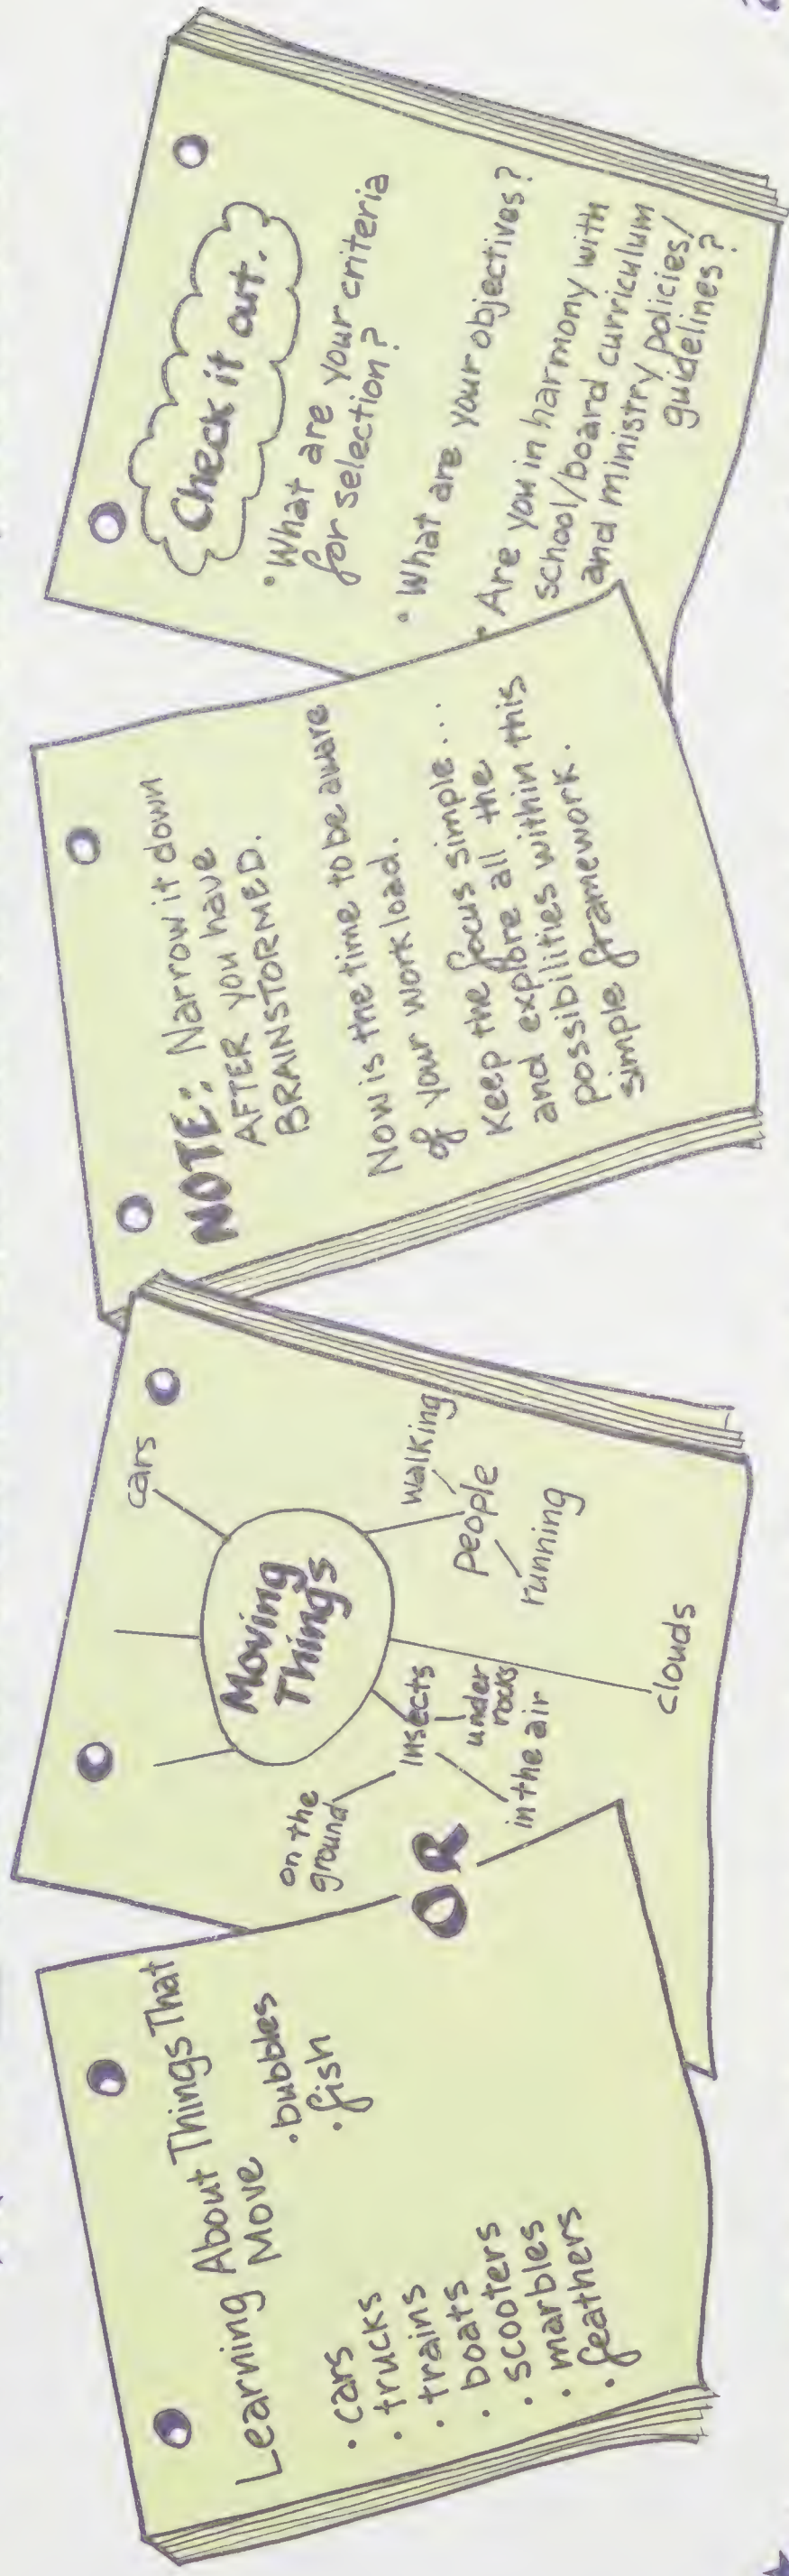 Learning About Things That
Move
• cars
• trucks
• trains
• boats
• scooters
• marbles
• feathers
• bubbles
• fish
OR
Moving
Things
cars
walking
people
running
clouds
insects
under
rocks
in the air
on the
ground
NOTE: Narrow it down
AFTER you have
BRAINSTORMED.
Now is the time to be aware
of your workload.
Keep the focus simple...
and explore all the
possibilities within this
simple framework.
Check it out.
• What are your criteria
for selection?
• What are your objectives?
• Are you in harmony with
school/board curriculum
and ministry policies/
guidelines?